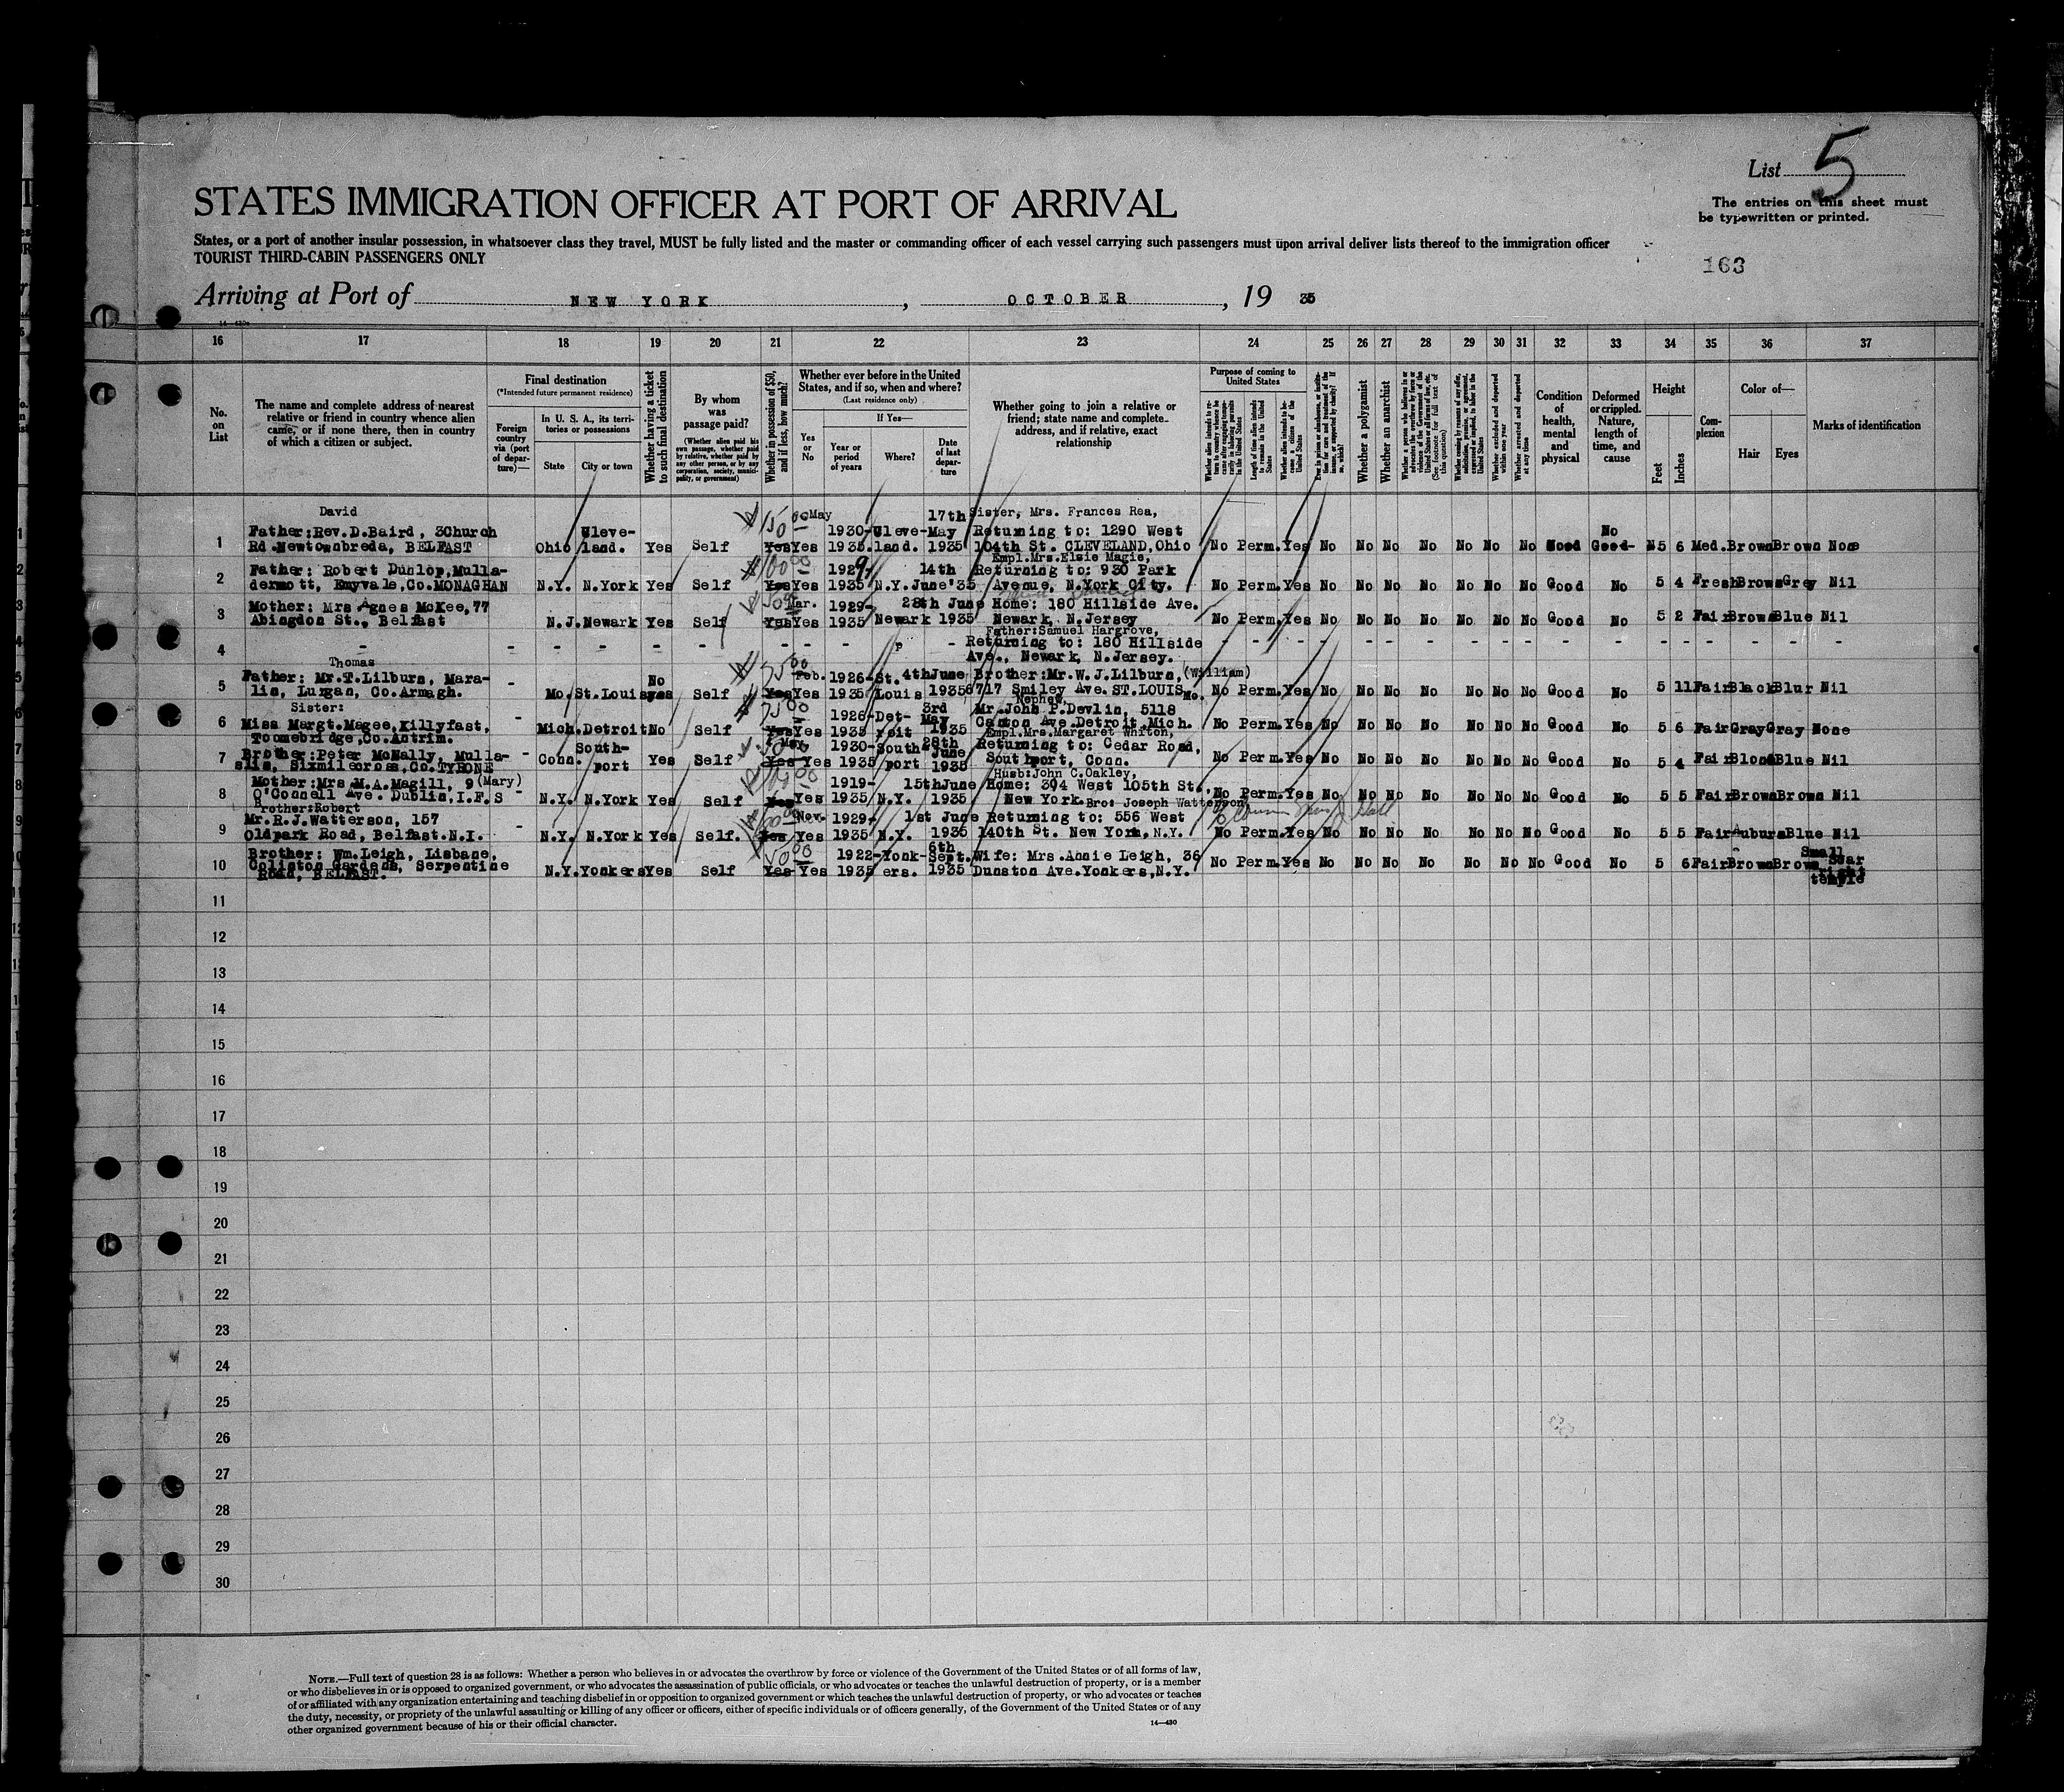 List 5
The entries on this sheet must
be typewritten or printed.
STATES IMMIGRATION OFFICER AT PORT OF ARRIVAL
States, or a port of another insular possession, in whatsoever class they travel, MUST be fully listed and the master or commanding officer of each vessel carrying such passengers must upon arrival deliver lists thereof to the immigration officer
TOURIST THIRD-CABIN PASSENGERS ONLY
163
Arriving at Port of NEW YORK, OCTOBER, 19 35
16 17 18 19 20 21 22 23 24 25 26 27 28 29 30 31 32 33 34 35 36 37
No. on List
The name and complete address of nearest
relative or friend in country whence alien
came, or if none there, then in country
of which a citizen or subject.
Final destination
(*Intended future permanent residence)
Foreign country via (port of departure)—
In U. S. A., its territories or possessions
State
City or town
Whether having a ticket to such final destination
By whom was passage paid?
(Whether alien paid his own passage, whether paid by relative, whether paid by any other person, or by any corporation, society, municipality, or government)
Whether in possession of $50, and if less, how much?
Whether ever before in the United States, and if so, when and where?
(Last residence only)
Yes or No
If Yes—
Year or period of years
Where?
Date of last departure
Whether going to join a relative or
friend; state name and complete
address, and if relative, exact
relationship
Purpose of coming to United States
Whether a polygamist
Whether an anarchist
Whether excluded and deported within one year
Whether arrested and deported at any time
Condition of health, mental and physical
Deformed or crippled. Nature, length of time, and cause
Height
Feet
Inches
Complexion
Color of—
Hair
Eyes
Marks of identification
David
1 Father:Rev.D.Baird, 3Church Ohio Cleve- Yes Self Yes Yes May 1930- Cleve- 17th May Sister, Mrs. Frances Rea,
Rd.Newtownbreda, BELFAST land. 1935. land. 1935 Returning to: 1290 West
104th St. CLEVELAND,Ohio No Perm. Yes No No No No No No No Good No 5 6 Med. Brown Brown None
2 Father: Robert Dunlop,Mulla- N.Y. N.York Yes Self Yes Yes 1929- N.Y. 14th June'35 Empl.Mrs.Elsie Magie,
dermott, Emyvale,Co.MONAGHAN 1935 Returning to: 930 Park
Avenue, N.York City. No Perm. Yes No No No No No No No Good No 5 4 Fresh Brown Grey Nil
3 Mother: Mrs Agnes McKee,77 N.J. Newark Yes Self Yes Yes Mar. 1929- Newark 28th June Home: 180 Hillside Ave.
Abingdon St., Belfast 1935 1935 Newark, N.Jersey No Perm. Yes No No No No No No No Good No 5 2 Fair Brown Blue Nil
4 - - - - - - - - Father:Samuel Hargrove,
Returning to: 180 Hillside
Ave., Newark, N.Jersey.
Thomas
5 Father: Mr.T.Lilburn, Mara- - Mo. St.Louis No Self Yes Yes Feb. 1926- St. 4th June Brother:Mr.W.J.Lilburn, (William)
lin, Lurgan, Co.Armagh. 1935 Louis 1935 6717 Smiley Ave. ST.LOUIS, Mo. No Perm. Yes No No No No No No No Good No 5 11 Fair Black Blur Nil
Sister:
6 Miss Margt.Magee,Killyfast, - Mich. Detroit No Self Yes Yes 1926- Det- 3rd May Nephew,
Toomebridge,Co.Antrim. 1935 roit 1935 Mr.John P.Devlin, 5118
Canton Ave.Detroit,Mich. No Perm. Yes No No No No No No No Good No 5 6 Fair Gray Gray None
7 Brother:Peter McNally, Mulla- - Conn. South- Yes Self Yes Yes May 1930- South 28th June Empl.Mrs.Margaret Whiton,
slin, Sixmilecross,Co.TYRONE port 1935 port 1935 Returning to: Cedar Road,
Southport, Conn. No Perm. Yes No No No No No No No Good No 5 4 Fair Blond Blue Nil
8 Mother:Mrs M.A.Magill, 9 (Mary) - N.Y. N.York Yes Self Yes Yes 1919- N.Y. 15th June Husb:John C.Oakley,
O'Connell Ave. Dublin.I.F.S 1935 1935 Home: 304 West 105th St.,
New York. No Perm. Yes No No No No No No No Good No 5 5 Fair Brown Brown Nil
Brother:Robert
9 Mr.R.J.Watterson, 157 N.Y. N.York Yes Self. Yes Yes Nov. 1929- N.Y. 1st June Bro: Joseph Watterson
Oldpark Road, Belfast.N.I. 1935 1935 Returning to: 556 West
140th St. New York, N.Y. No Perm. Yes No No No No No No No Good No 5 5 Fair Auburn Blue Nil
10 Brother: Wm.Leigh, Lisbane, N.Y. Yonkers Yes Self Yes Yes 1922- Yonk- 6th Sept. Wife: Mrs.Annie Leigh, 36
Colinton Gardens, Serpentine 1935 ers. 1935 Dunston Ave.Yonkers,N.Y. No Perm. Yes No No No No No No No Good No 5 6 Fair Brown Brown Small Scar right temple
Road, BELFAST.
11
12
13
14
15
16
17
18
19
20
21
22
23
24
25
26
27
28
29
30
NOTE.—Full text of question 28 is as follows: Whether a person who believes in or advocates the overthrow by force or violence of the Government of the United States or of all forms of law,
or who disbelieves in or is opposed to organized government, or who advocates the assassination of public officials, or who advocates or teaches the unlawful destruction of property, or is a member
of or affiliated with any organization entertaining and teaching disbelief in or opposition to organized government or which teaches the unlawful destruction of property, or who advocates or teaches
the duty, necessity, or propriety of the unlawful assaulting or killing of any officer or officers, either of specific individuals or of officers generally, of the Government of the United States or of any
other organized government because of his or their official character.
14—430